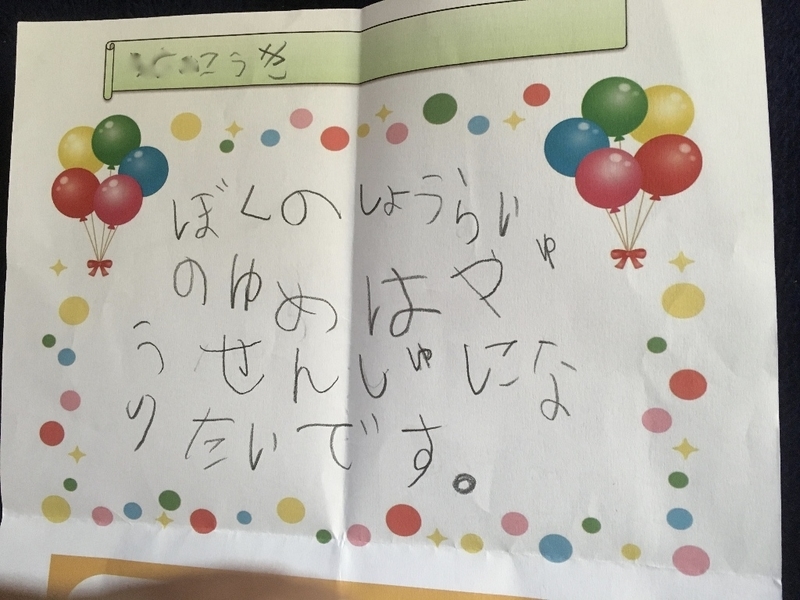 こうき
ぼくのしょうらい
のゆめはやゅ
うせんしゅにな
りたいです。